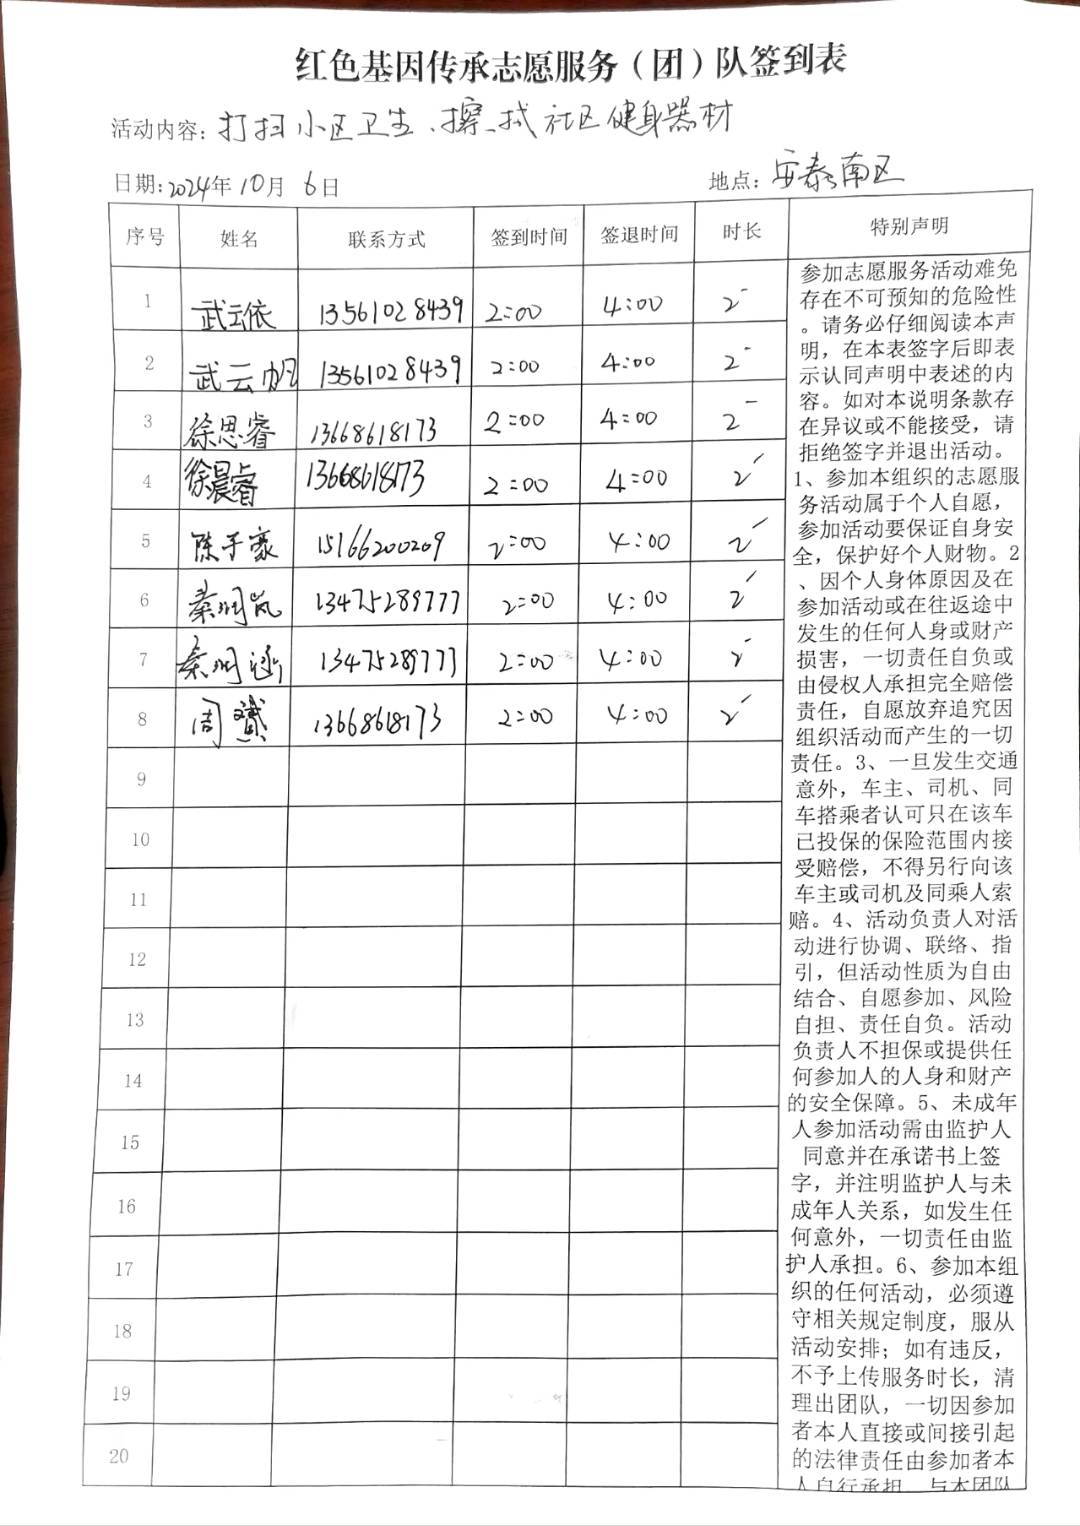 红色基因传承志愿服务（团）队签到表
活动内容：打扫小区卫生、擦拭社区健身器材
日期：2024年10月6日 地点：安泰南区
序号 姓名 联系方式 签到时间 签退时间 时长 特别声明
1 武云依 13561028439 2:00 4:00 2
2 武云帆 13561028439 2:00 4:00 2
3 徐思睿 13668618173 2:00 4:00 2
4 徐晨睿 13668618173 2:00 4:00 2
5 陈子豪 15166200209 2:00 4:00 2
6 秦润岚 13475289777 2:00 4:00 2
7 秦润涵 13475289777 2:00 4:00 2
8 周 13668618173 2:00 4:00 2
9
10
11
12
13
14
15
16
17
18
19
20
参加志愿服务活动难免
存在不可预知的危险性
。请务必仔细阅读本声
明，在本表签字后即表
示认同声明中表述的内
容。如对本说明条款存
在异议或不能接受，请
拒绝签字并退出活动。
1、参加本组织的志愿服
务活动属于个人自愿，
参加活动要保证自身安
全，保护好个人财物。2
、因个人身体原因及在
参加活动或在往返途中
发生的任何人身或财产
损害，一切责任自负或
由侵权人承担完全赔偿
责任，自愿放弃追究因
组织活动而产生的一切
责任。3、一旦发生交通
意外，车主、司机、同
车搭乘者认可只在该车
已投保的保险范围内接
受赔偿，不得另行向该
车主或司机及同乘人索
赔。4、活动负责人对活
动进行协调、联络、指
引，但活动性质为自由
结合、自愿参加、风险
自担、责任自负。活动
负责人不担保或提供任
何参加人的人身和财产
的安全保障。5、未成年
人参加活动需由监护人
同意并在承诺书上签
字，并注明监护人与未
成年人关系，如发生任
何意外，一切责任由监
护人承担。6、参加本组
织的任何活动，必须遵
守相关规定制度，服从
活动安排；如有违反，
不予上传服务时长，清
理出团队，一切因参加
者本人直接或间接引起
的法律责任由参加者本
人自行承担，与本团队